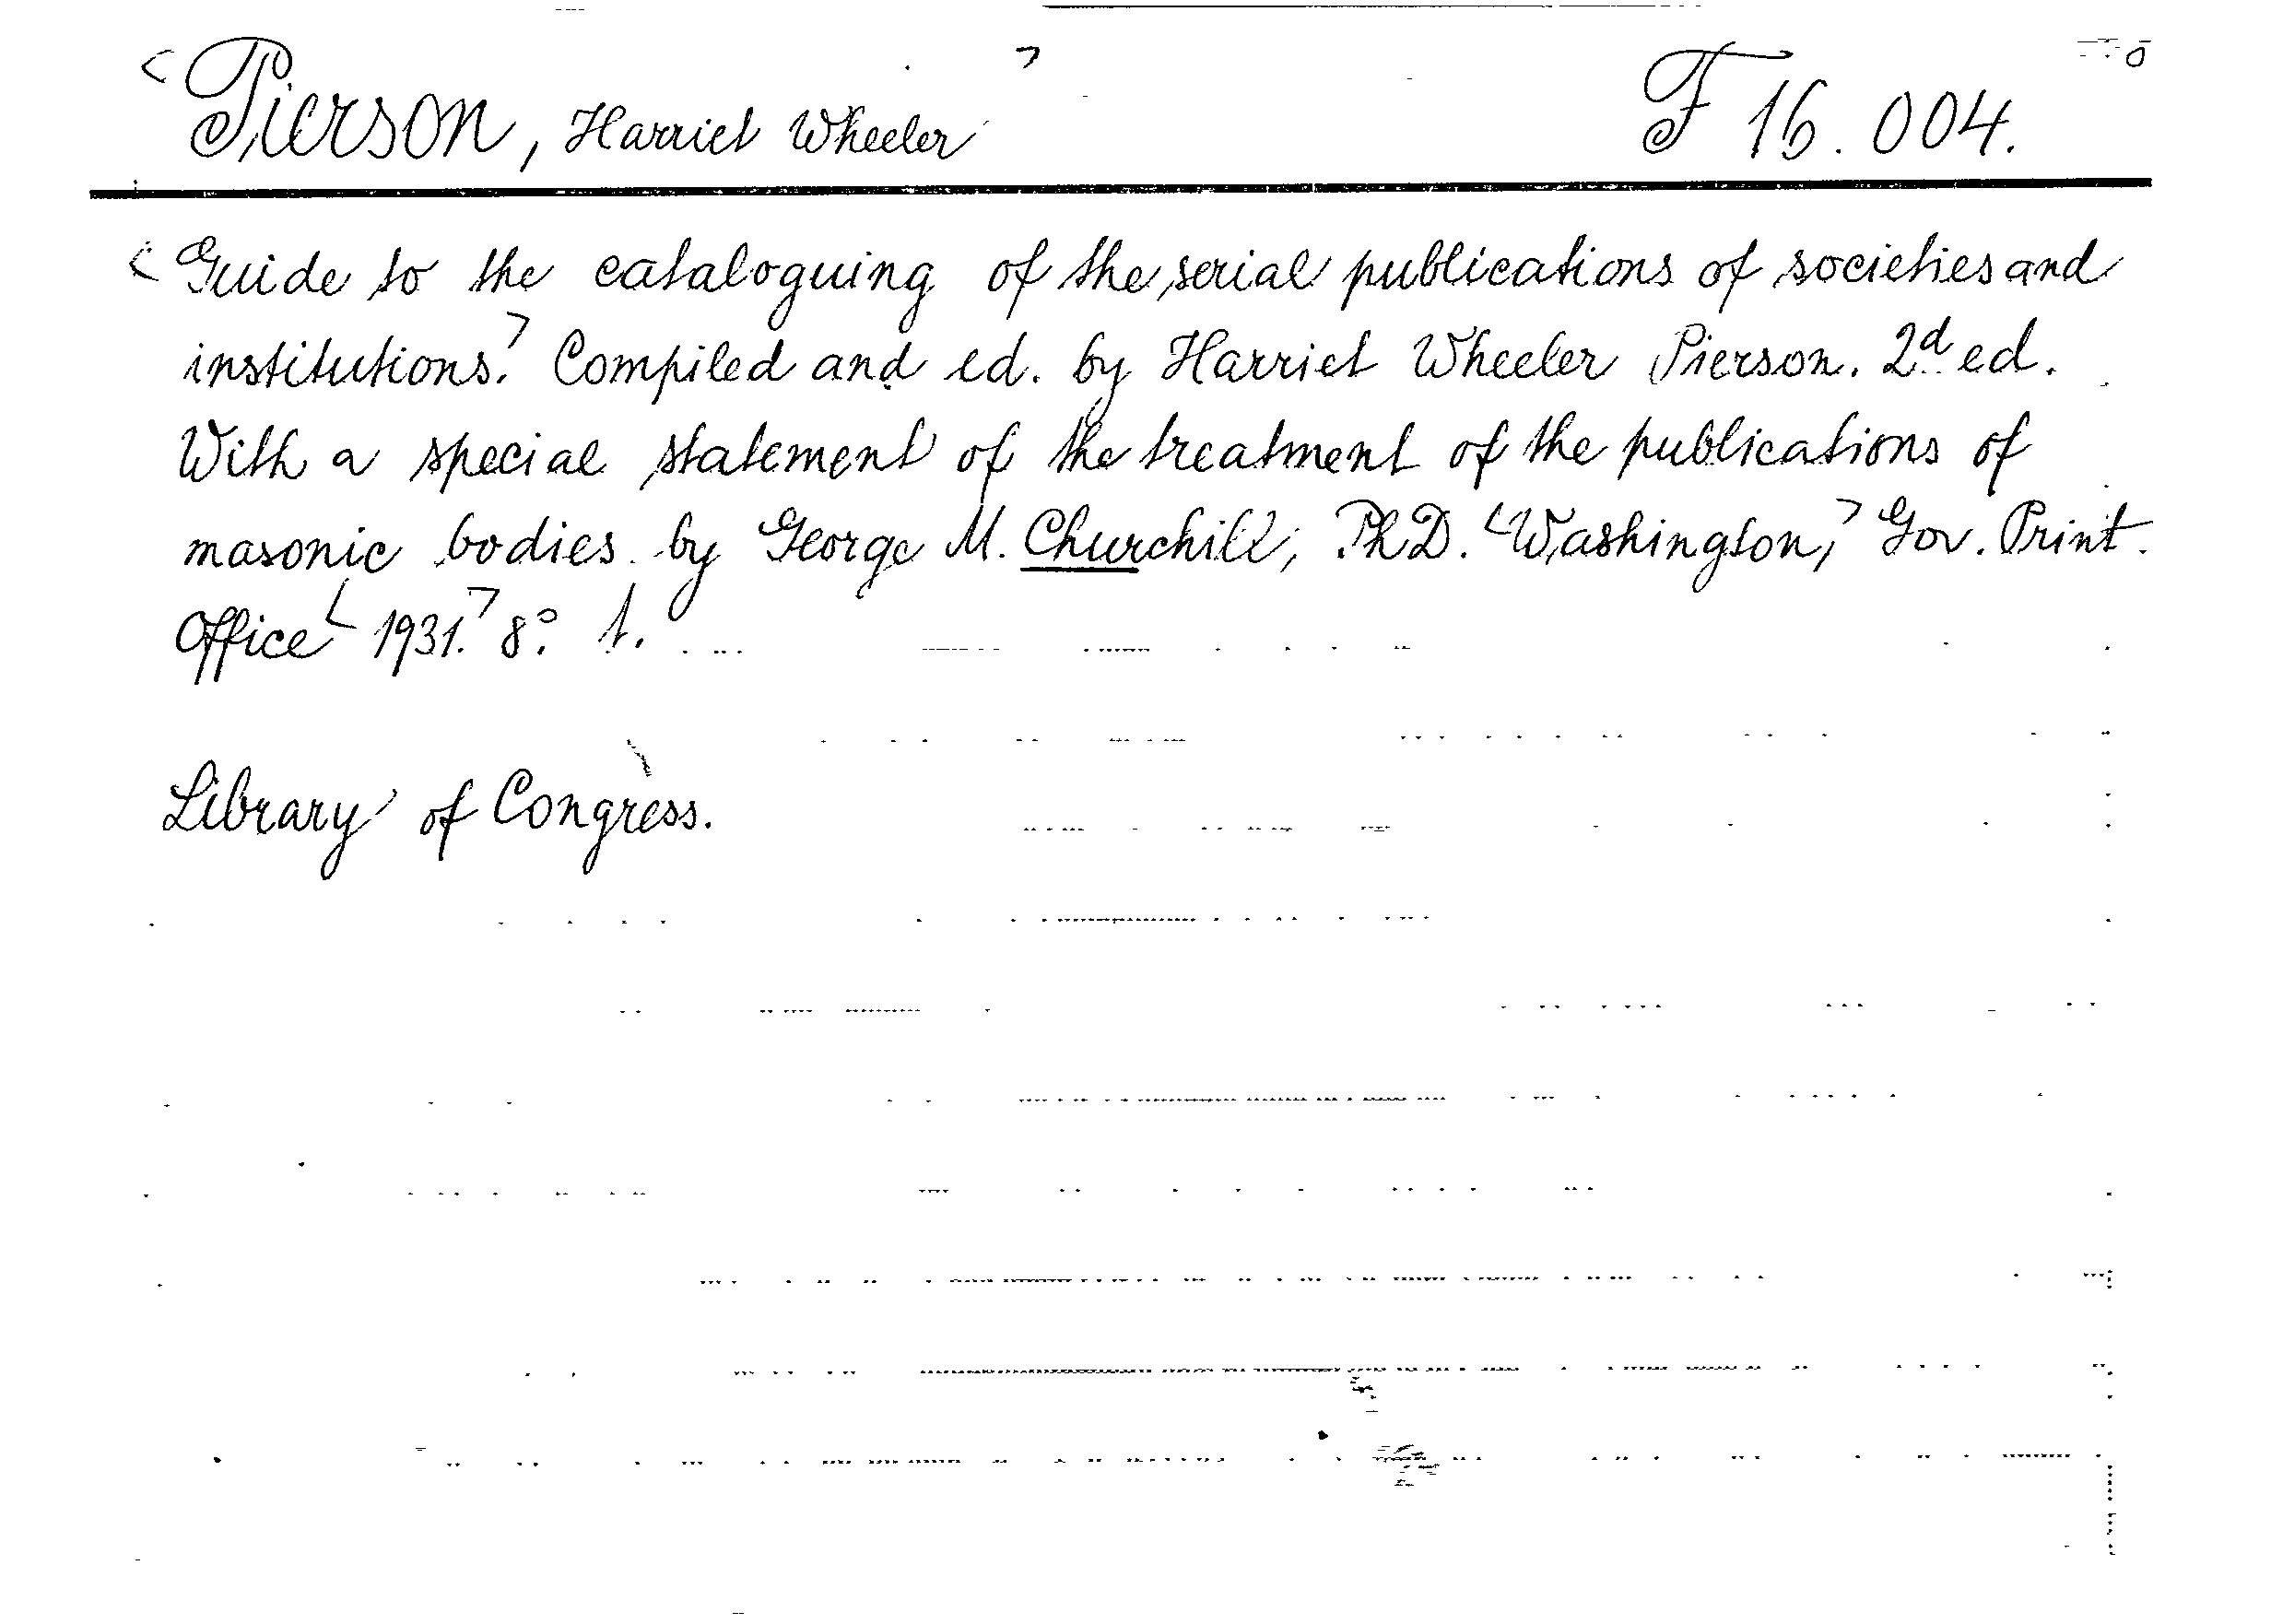 <Pierson, Harriet Wheeler> F 16.004.
<Guide to the cataloguing of the serial publications of societies and
institutions.> Compiled and ed. by Harriet Wheeler Pierson. 2d ed.
With a special statement of the treatment of the publications of
masonic bodies by George M. Churchill, Ph.D. <Washington,> Gov. Print.
Office <1931.> 8o. t.
Library of Congress.